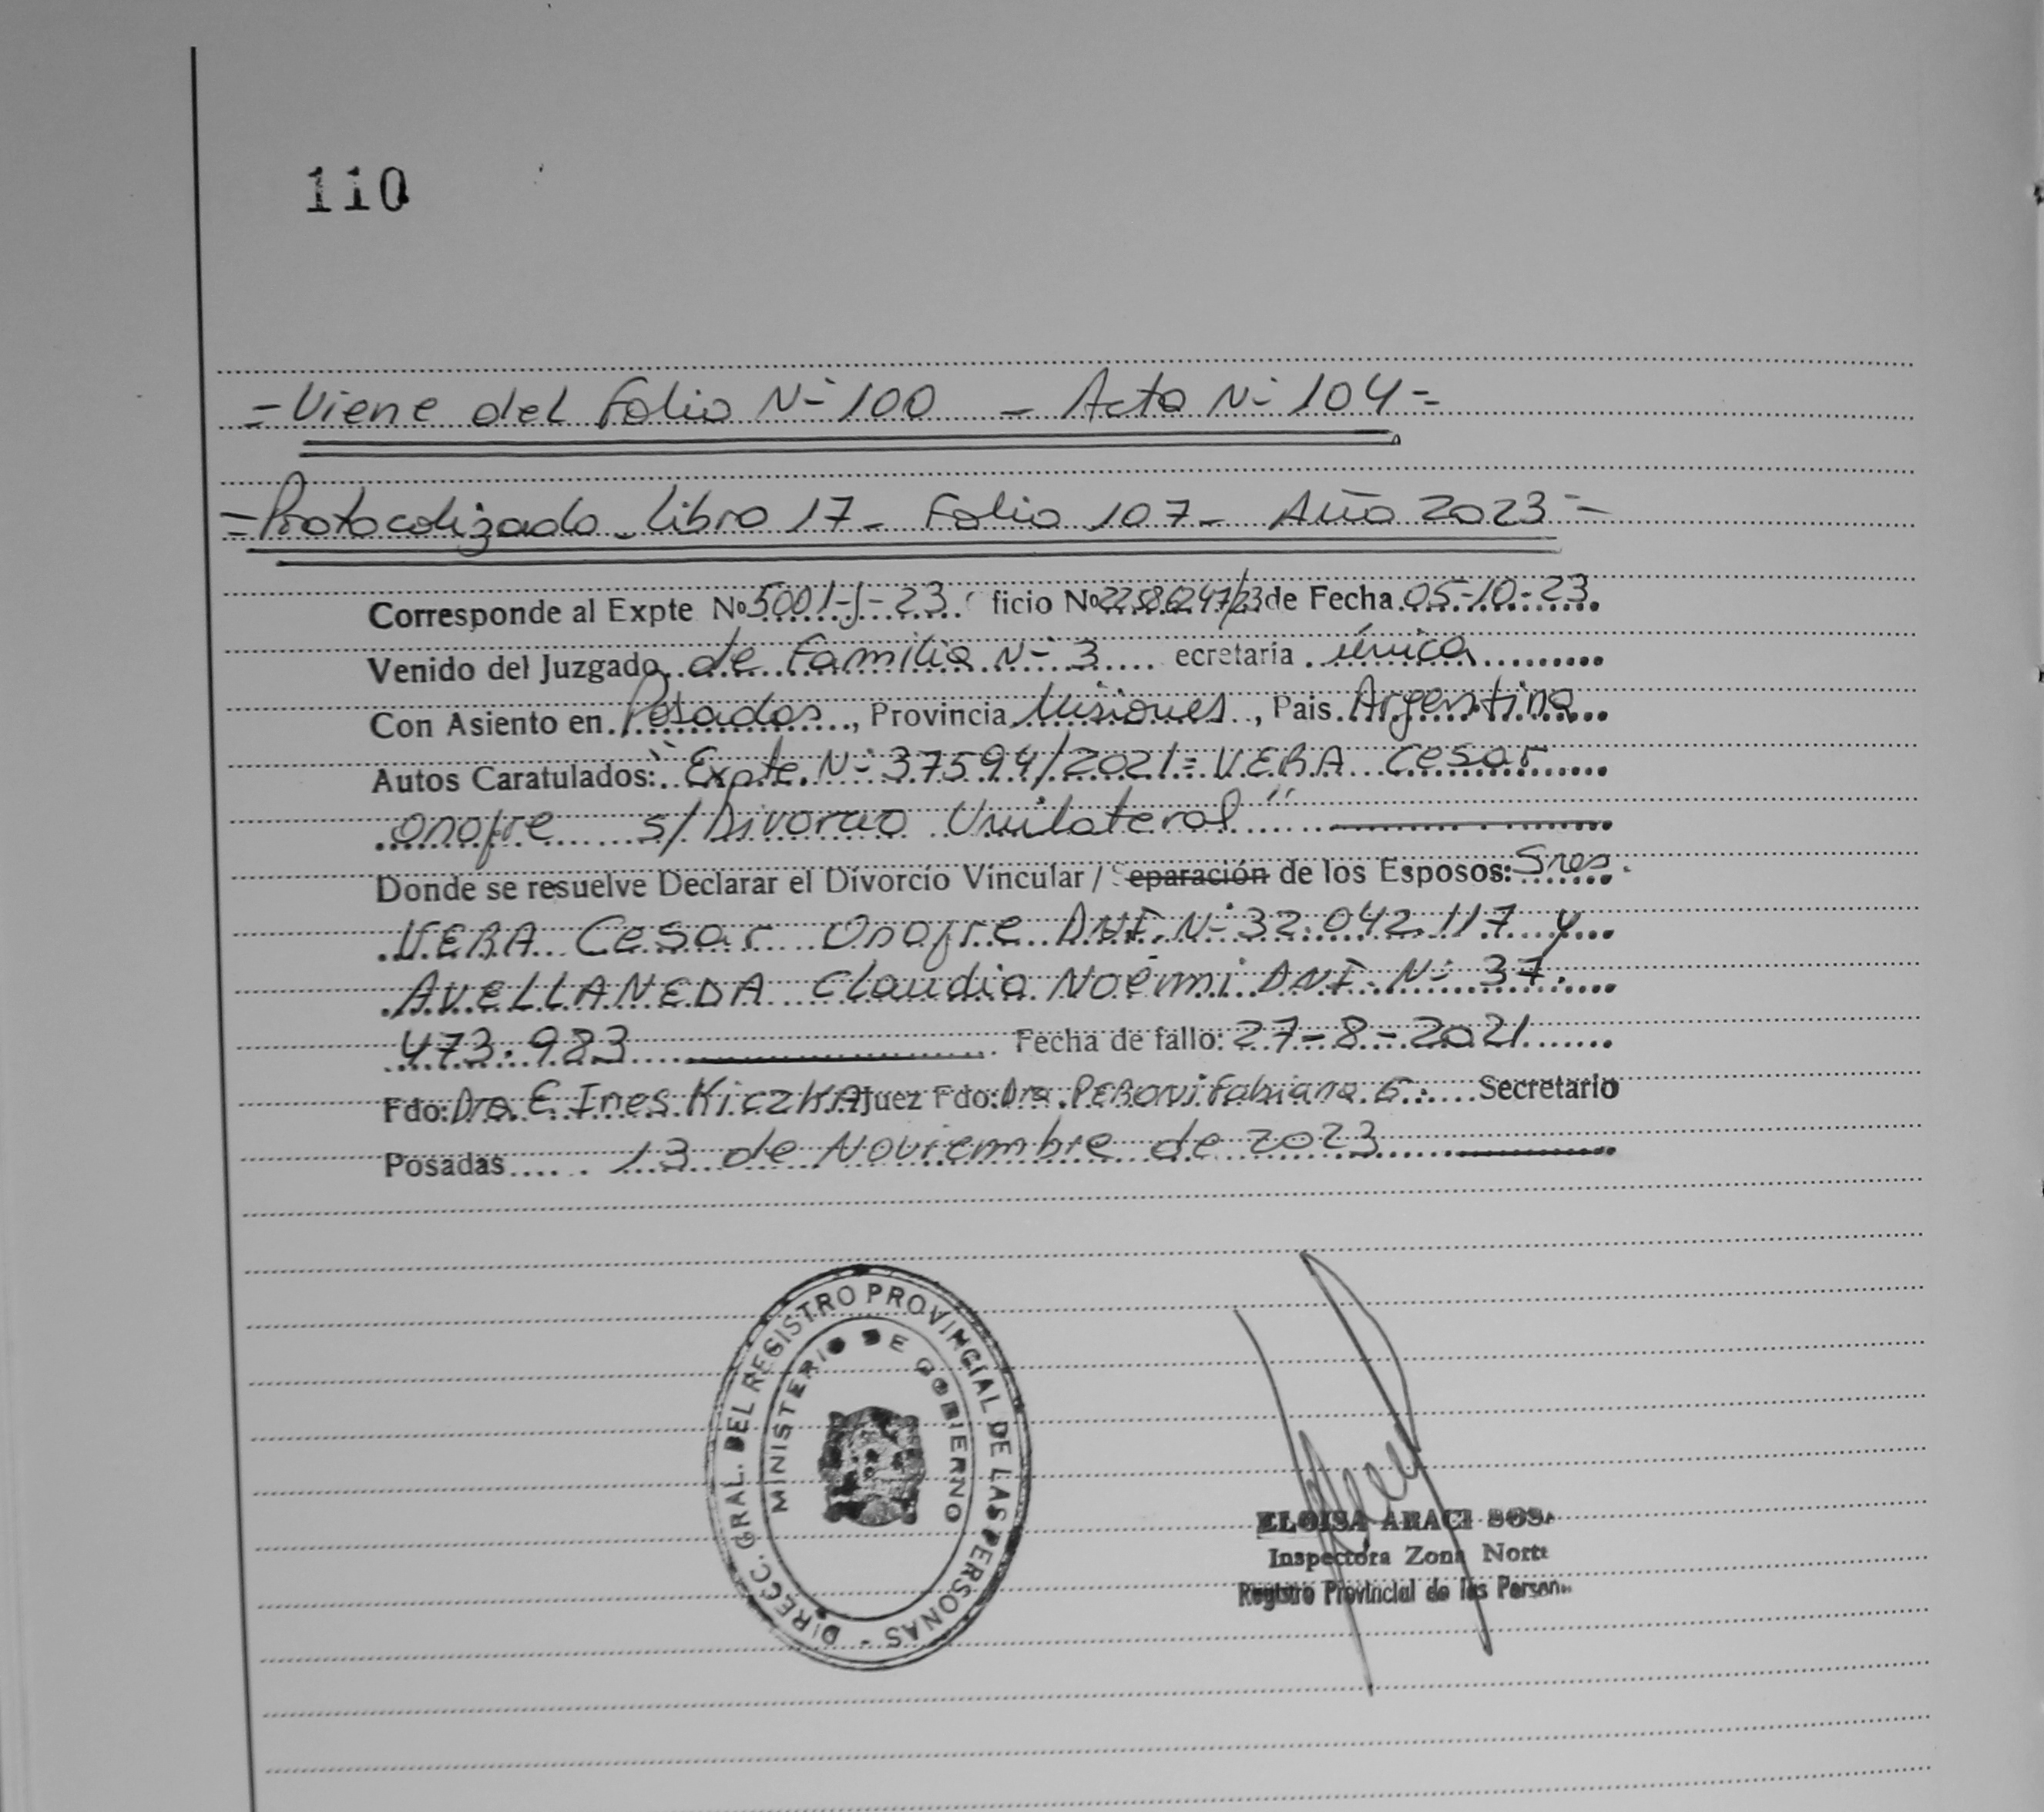 110
=Viene del Folio N- 100 - Acta N- 104=
=Protocolizado - Libro 17 - Folio 107 - Año 2023=
Corresponde al Expte Nº 5001-J-23 ficio Nº 22586247/23 de Fecha 05-10-23
Venido del Juzgado de Familia N- 3 ecretaria única
Con Asiento en Posadas, Provincia Misiones, Pais Argentina
Autos Caratulados: "Expte. N- 37594/2021= VERA Cesar
Onofre s/ Divorcio Unilateral"
Donde se resuelve Declarar el Divorcio Vincular / Separación de los Esposos: Sres.
VERA Cesar Onofre DNI. N- 32.042.117 y
AVELLANEDA Claudia Noemi DNI. N- 37.
473.983 Fecha de fallo: 27-8-2021
Fdo: Dra. E. Ines Kiczka Juez Fdo: Dra. PERONI Fabiana G. Secretario
Posadas 13 de Noviembre de 2023
DIRECC. GRAL. DEL REGISTRO PROVINCIAL DE LAS PERSONAS -
MINISTERIO DE GOBIERNO
ELOISA ARACI SOSA
Inspectora Zona Norte
Registro Provincial de las Person